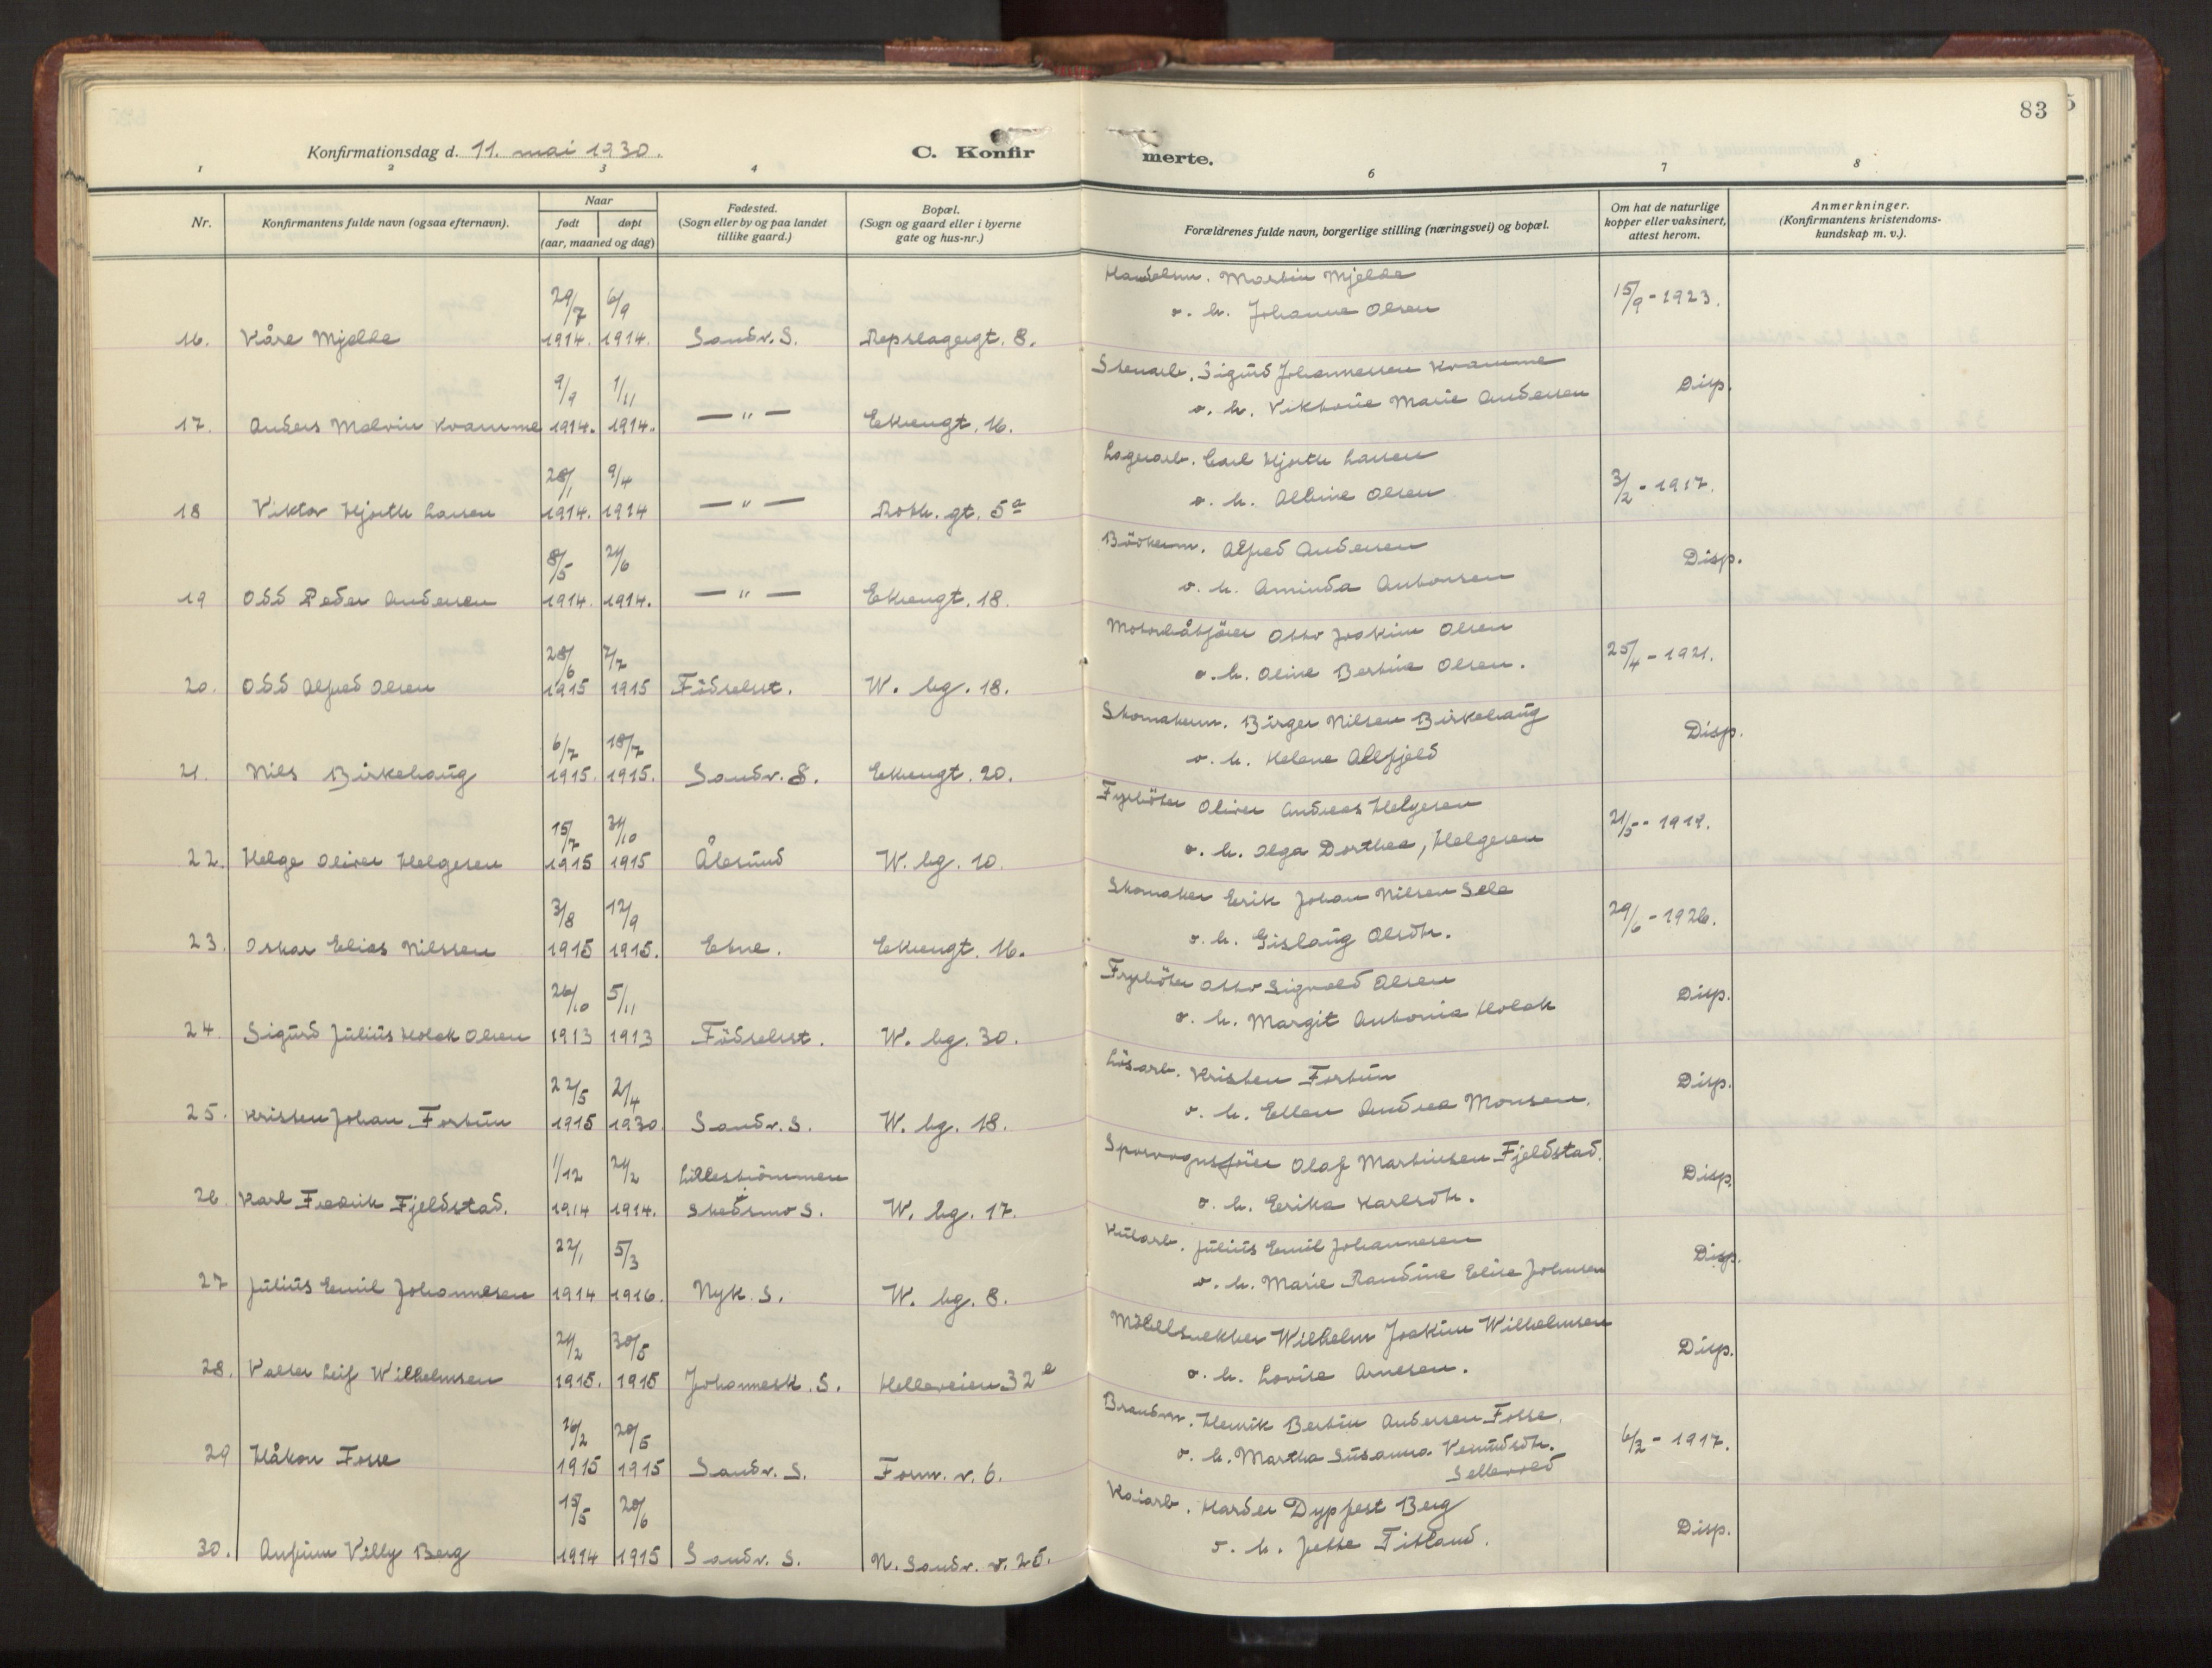 83
Konfirmationsdag d. 11. mai 1930.
C. Konfirmerte.
1 2 3 4 6 7 8
Nr.
Konfirmantens fulde navn (ogsaa efternavn).
Naar
født døpt
(aar, maaned og dag)
Fødested.
(Sogn eller by og paa landet
tillike gaard.)
Bopæl.
(Sogn og gaard eller i byerne
gate og hus-nr.)
Forældrenes fulde navn, borgerlige stilling (næringsvei) og bopæl.
Om hat de naturlige
kopper eller vaksinert,
attest herom.
Anmerkninger.
(Konfirmantens kristendoms-
kundskap m. v.).
29/7 6/9 Handelsm. Martin Mjelde 15/9 - 1923.
16. Kåre Mjelde 1914. 1914. Sandv. S. Repslagergt. 8. o. h. Johanne Olsen
9/9 1/11 Stenarb. Sigurd Johannessen Kvamme Disp.
17. Anders Malvin Kvamme 1914. 1914. — " — Ekrengt. 16. o. h. Viktoria Marie Andersen
28/1 9/4 Lagerarb. Carl Hjorth Larsen 3/2 - 1917.
18 Viktor Hjorth Larsen 1914. 1914 — " — Roth. gt. 5a o. h. Albine Olsen
8/5 21/6 Bödkerm. Alfred Andersen Disp.
19 Odd Peder Andersen 1914. 1914. — " — Ekrengt. 18. o. h. Aminda Antonsen
28/6 7/7 Motorbåtförer Otto Joakim Olsen 25/4 - 1921.
20. Odd Alfred Olsen 1915 1915 Födselsst. W. bg. 18. o. h. Oline Bertine Olsen.
6/7 18/7 Skomakerm. Birger Nilsen Birkehaug Disp.
21. Nils Birkehaug 1915. 1915. Sandv. S. Ekrengt. 20. o. h. Helene Allfjeld
15/7 31/10 Fyrböter Oliver Andreas Helgesen 21/5 - 1919.
22. Helge Oliver Helgesen 1915 1915 Ålesund W. bg. 10. o. h. Olga Dorthea, Helgesen
3/8 12/9 Skomaker Eerik Johan Nilsen Sele 29/6 - 1926.
23. Oskar Elias Nilssen 1915 1915. Etne. Ekrengt. 16. o. h. Gislaug Olsdtr.
26/10 5/11 Fyrböter Otto Sigvald Olsen Disp.
24. Sigurd Julius Holck Olsen 1913 1913 Födselsst. W. bg. 30. o. h. Margit Antonia Holck
22/5 2/4 Lösarb. Kristen Fortun Disp.
25. Kristen Johan Fortun 1915 1930. Sandv. S. W. bg. 18. o. h. Ellen Andrea Monsen.
1/12 21/2 Lilleströmmen Sporvognsförer Olaf Martinsen Fjeldstad. Disp.
26. Karl Fredrik Fjeldstad. 1914 1914. Skedsmo S. W. bg. 17. o. h. Eerika Karlsdtr.
22/1 5/3 Kularb. Julius Emil Johannesen Disp.
27 Julius Emil Johannesen 1914 1916. Nyk. S. W. bg. 8. o. h. Marie Randine Elise Johnsen
21/2 30/5 Möbelsnekker Wilhelm Joakim Wilhelmsen Disp.
28. Valter Leif Wilhelmsen 1915. 1915 Johannesk. S. Helleveien 32e o. h. Lovise Arnesen.
26/2 20/5 Brandm. Henrik Bertin Andersen Fosse. 6/2 - 1917.
29 Håkon Fosse 1915 1915 Sandv. S. Formv. v. 6. o. h. Martha Susanna Vemundsdtr.
Sellevold
15/5 20/6 Kaiarb. Harder Dypfest Berg Disp.
30. Anfinn Villy Berg 1914 1915 Sandv. S. N. Sandv. v. 25. o. h. Jette Titland.